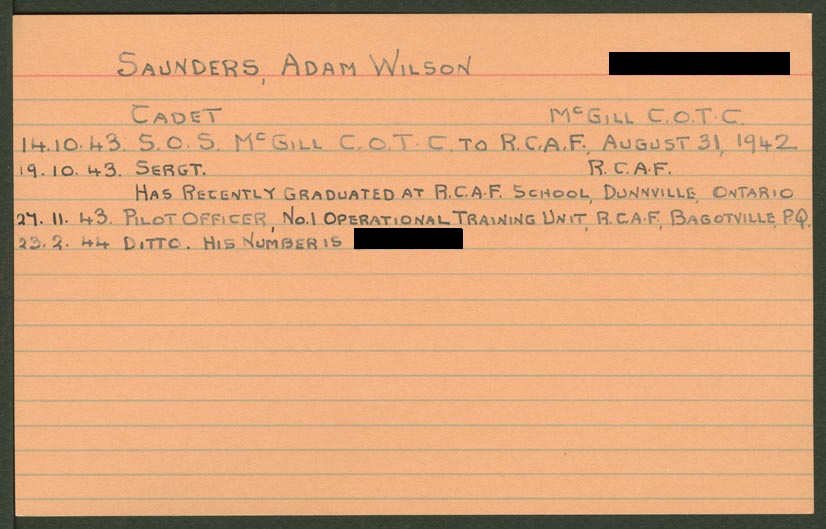 SAUNDERS, ADAM WILSON
CADET McGILL C.O.T.C.
14.10.43. S.O.S. McGILL C.O.T.C. TO R.C.A.F. AUGUST 31, 1942
19.10.43. SERGT. R.C.A.F.
HAS RECENTLY GRADUATED AT R.C.A.F. SCHOOL, DUNNVILLE, ONTARIO
27.11.43. PILOT OFFICER, No.1 OPERATIONAL TRAINING UNIT, R.C.A.F., BAGOTVILLE, P.Q.
23.2.44 DITTO. HIS NUMBER IS